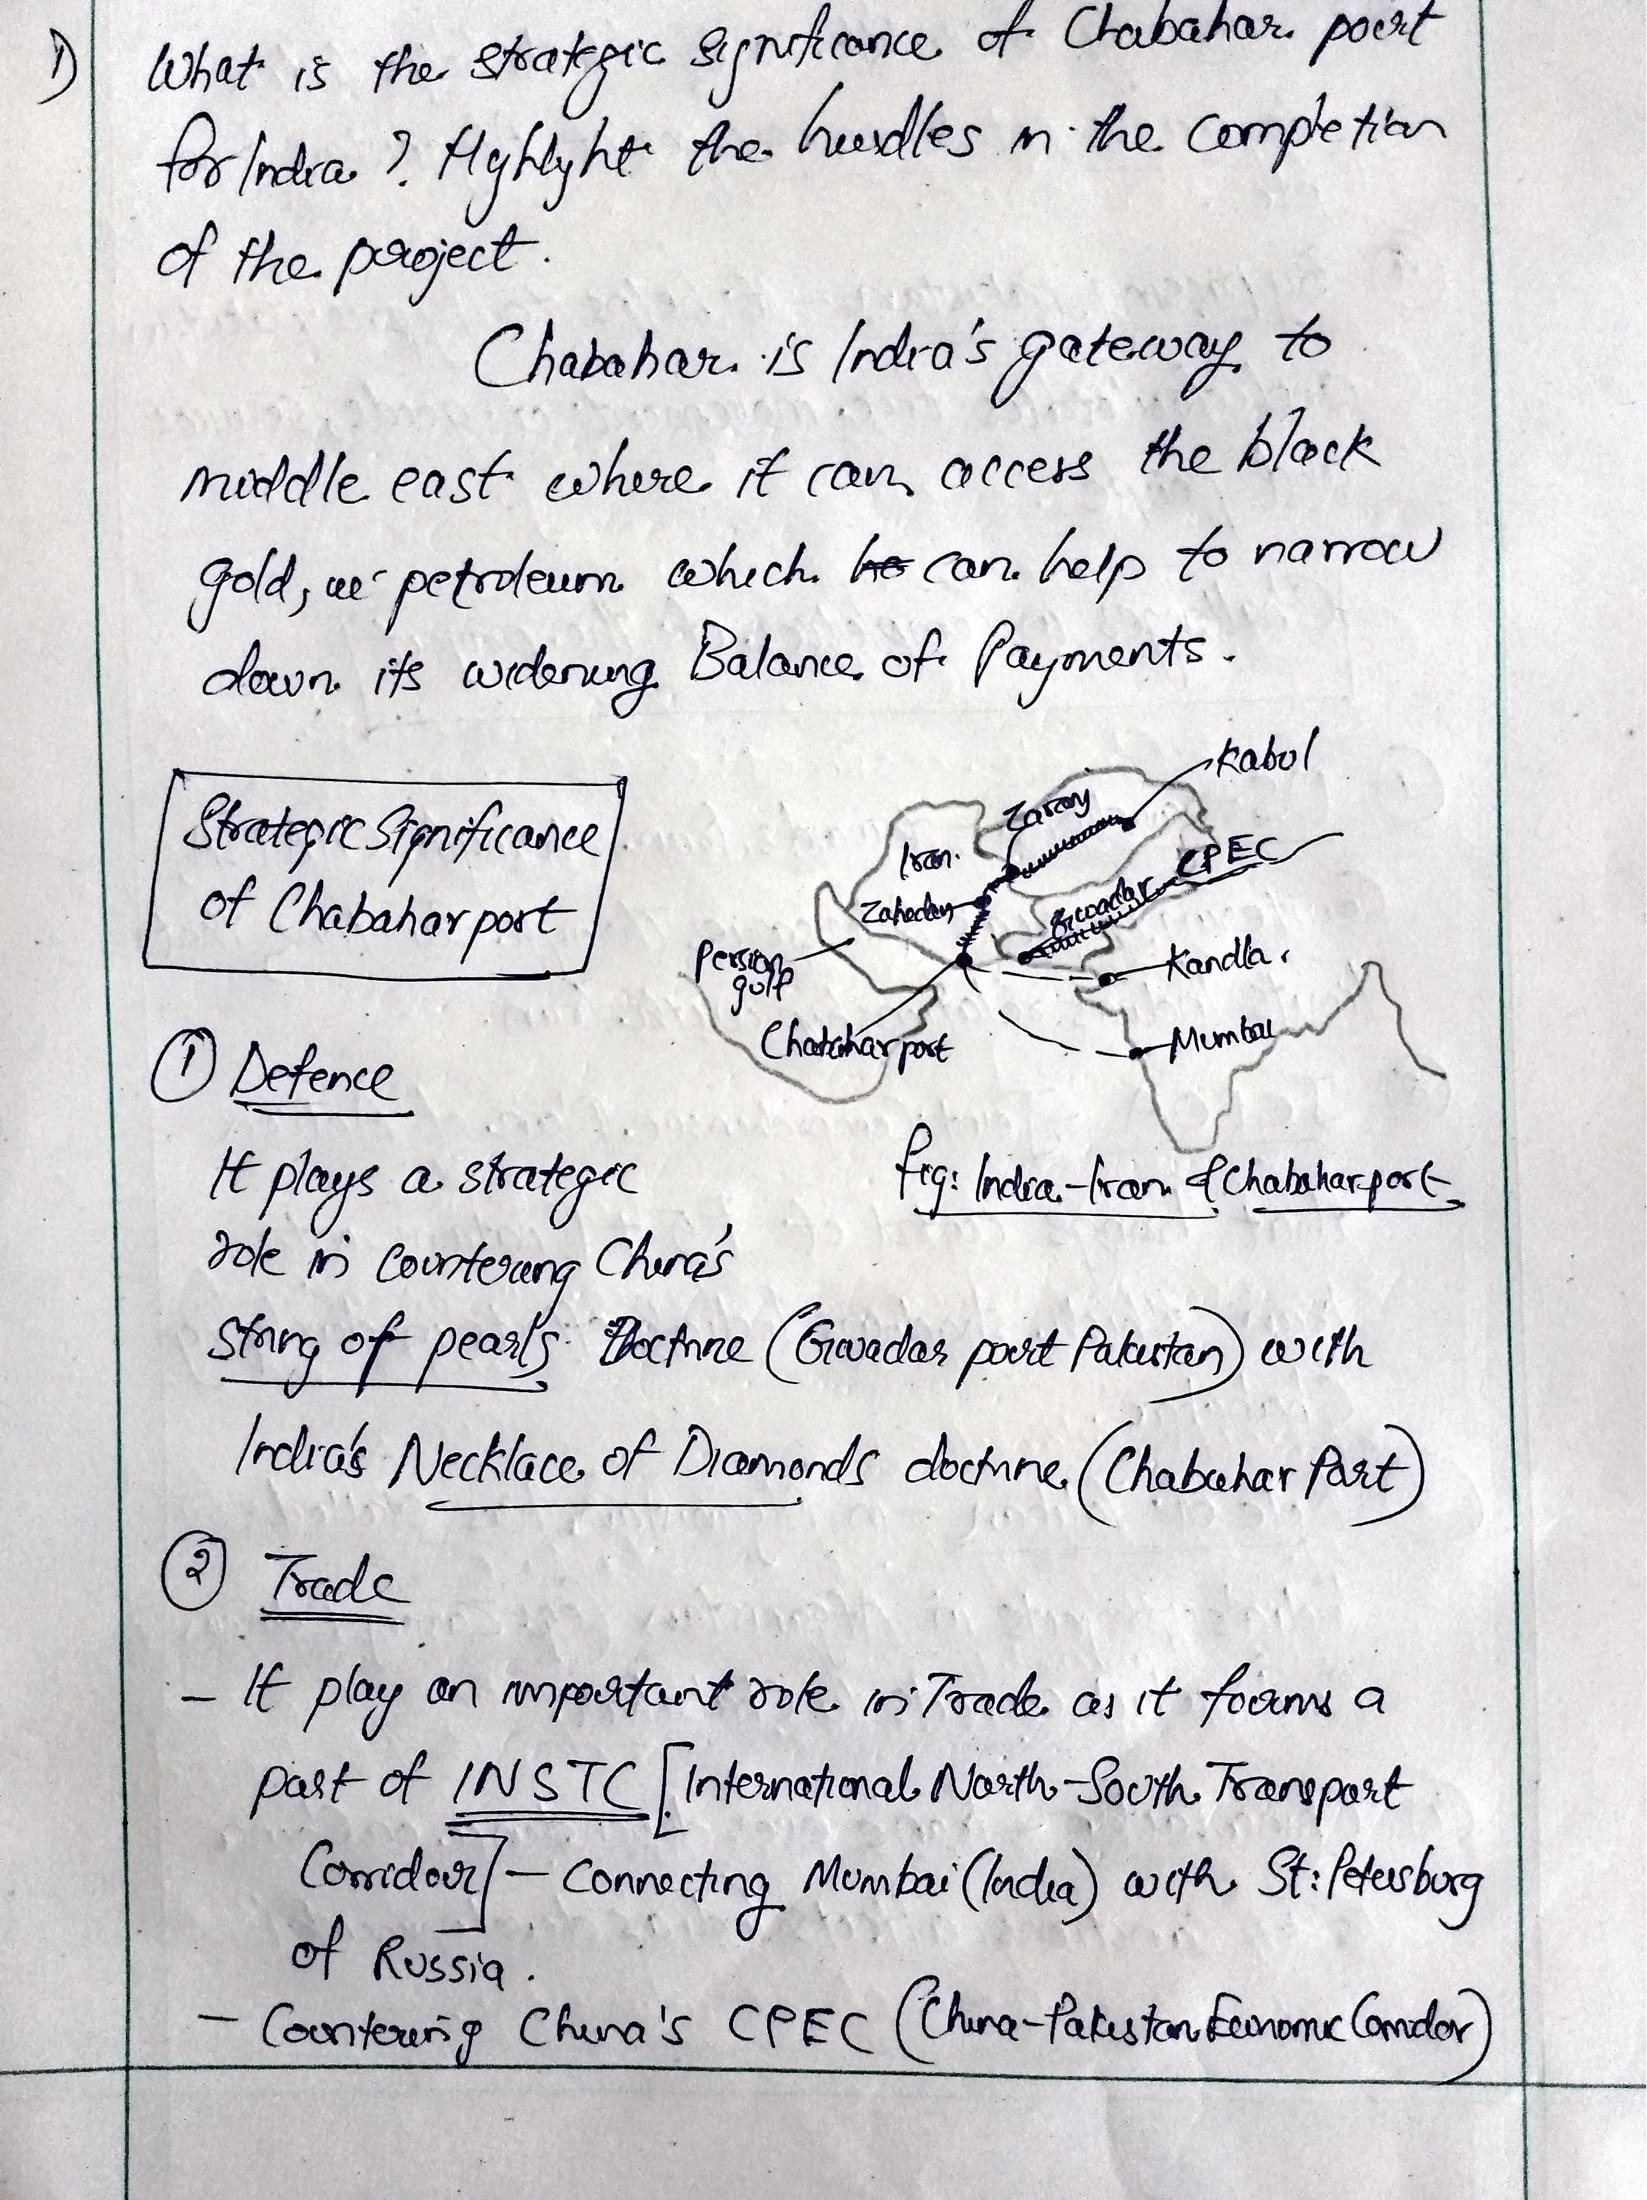 1)
What is the strategic significance of Chabahar port
for India ? Highlight the hurdles in the completion
of the project.
Chabahar is India's gateway to
middle east where it can access the black
gold, ie petroleum which can help to narrow
down its widening Balance of Payments.
Strategic Significance
of Chabahar port
Kabul
Zaranj
Iran
CPEC
Zahedan
Gwadar
Persian
gulf
Kandla
Chabahar port
Mumbai
fig: India-Iran & Chabahar port
1 Defence
It plays a strategic
role in countering China's
string of pearls Doctrine (Gwadar port Pakistan) with
India's Necklace of Diamonds doctrine (Chabahar Port)
2 Trade
- It play an important role in Trade as it forms a
part of INSTC [International North-South Transport
Corridor] - Connecting Mumbai (India) with St: Petersburg
of Russia.
- Countering China's CPEC (China-Pakistan Economic Corridor)